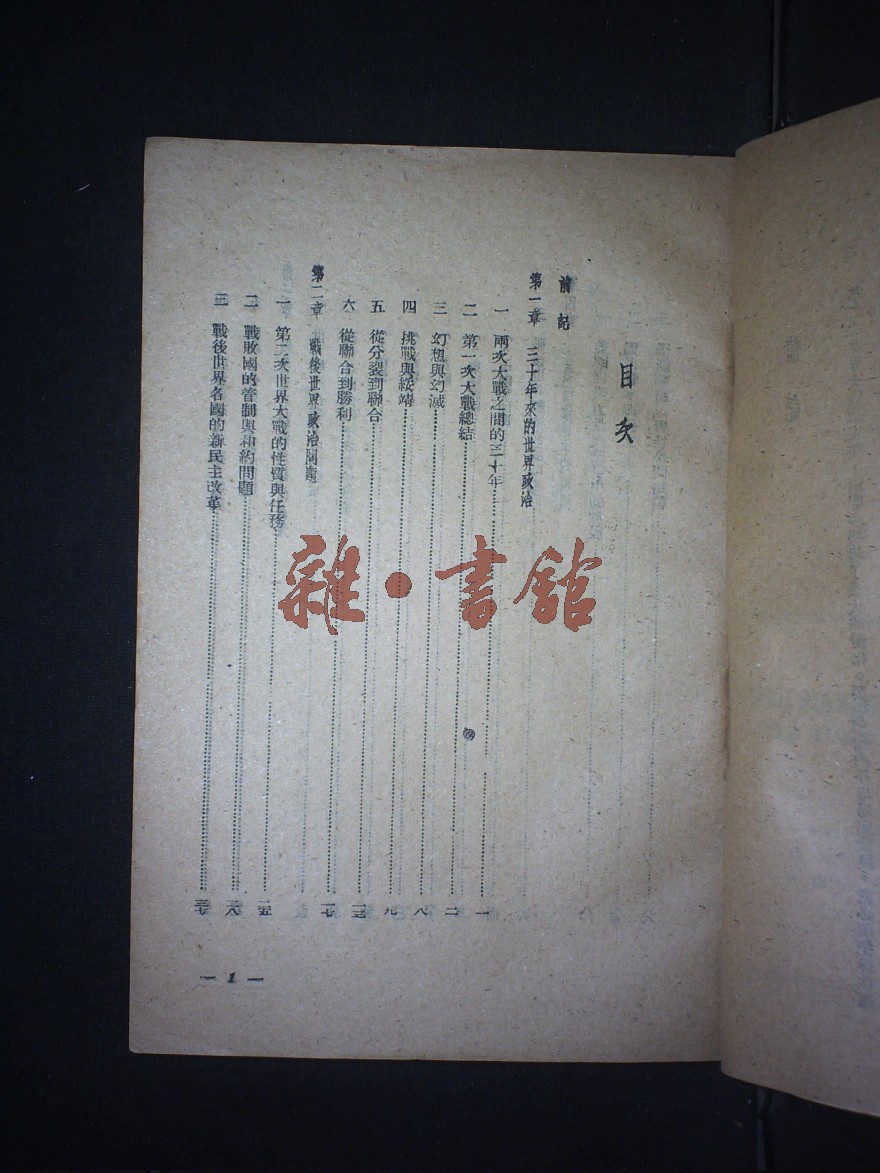 目次
前記
第一章 三十年來的世界政治
一 兩次大戰之間的三十年 一
二 第一次大戰總結 二
三 幻想與幻滅 八
四 挑戰與綏靖 九
五 從分裂到聯合 一三
六 從聯合到勝利 一七
第二章 戰後世界政治問題
一 第二次世界大戰的性質與任務 二五
二 戰敗國的管制與和約問題 二八
三 戰後世界各國的新民主改革
— 1 —
雜·書館